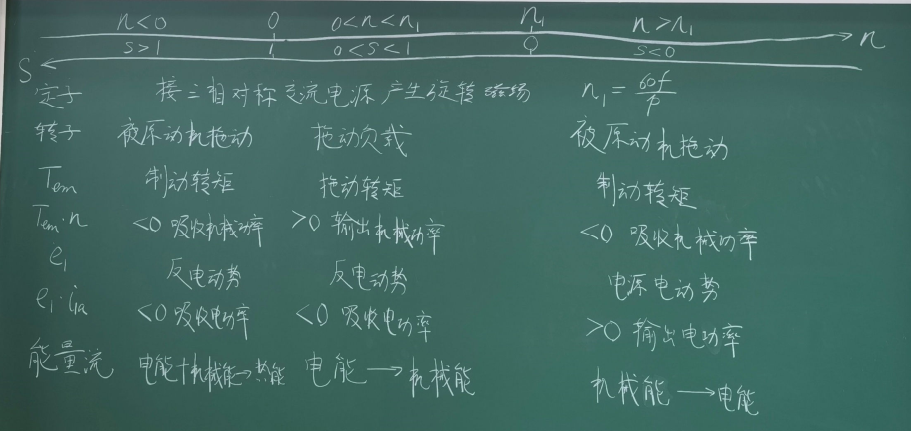 n<0 0 0<n<n₁ n₁ n>n₁ n
S s>1 1 0<s<1 0 s<0
定子 接三相对称交流电源产生旋转磁场 n₁=60f/p
转子 被原动机拖动 拖动负载 被原动机拖动
Tem 制动转矩 拖动转矩 制动转矩
Tem·n <0 吸收机械功率 >0 输出机械功率 <0 吸收机械功率
e₁ 反电动势 反电动势 电源电动势
e₁·i₁a <0 吸收电功率 <0 吸收电功率 >0 输出电功率
能量流 电能+机械能→热能 电能→机械能 机械能→电能